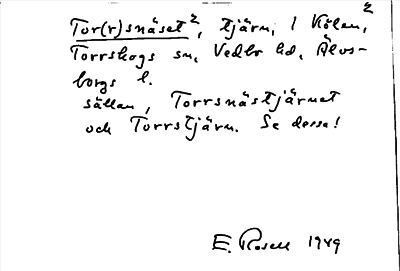 Tor(r)snäset², tjärn, i Kölen,²
Torrskogs sn, Vedbo hd, Älvs-
borgs l.
sällan, Torrsnästjärnet
och Torrstjärn. Se dessa!
E. Rosell 1949